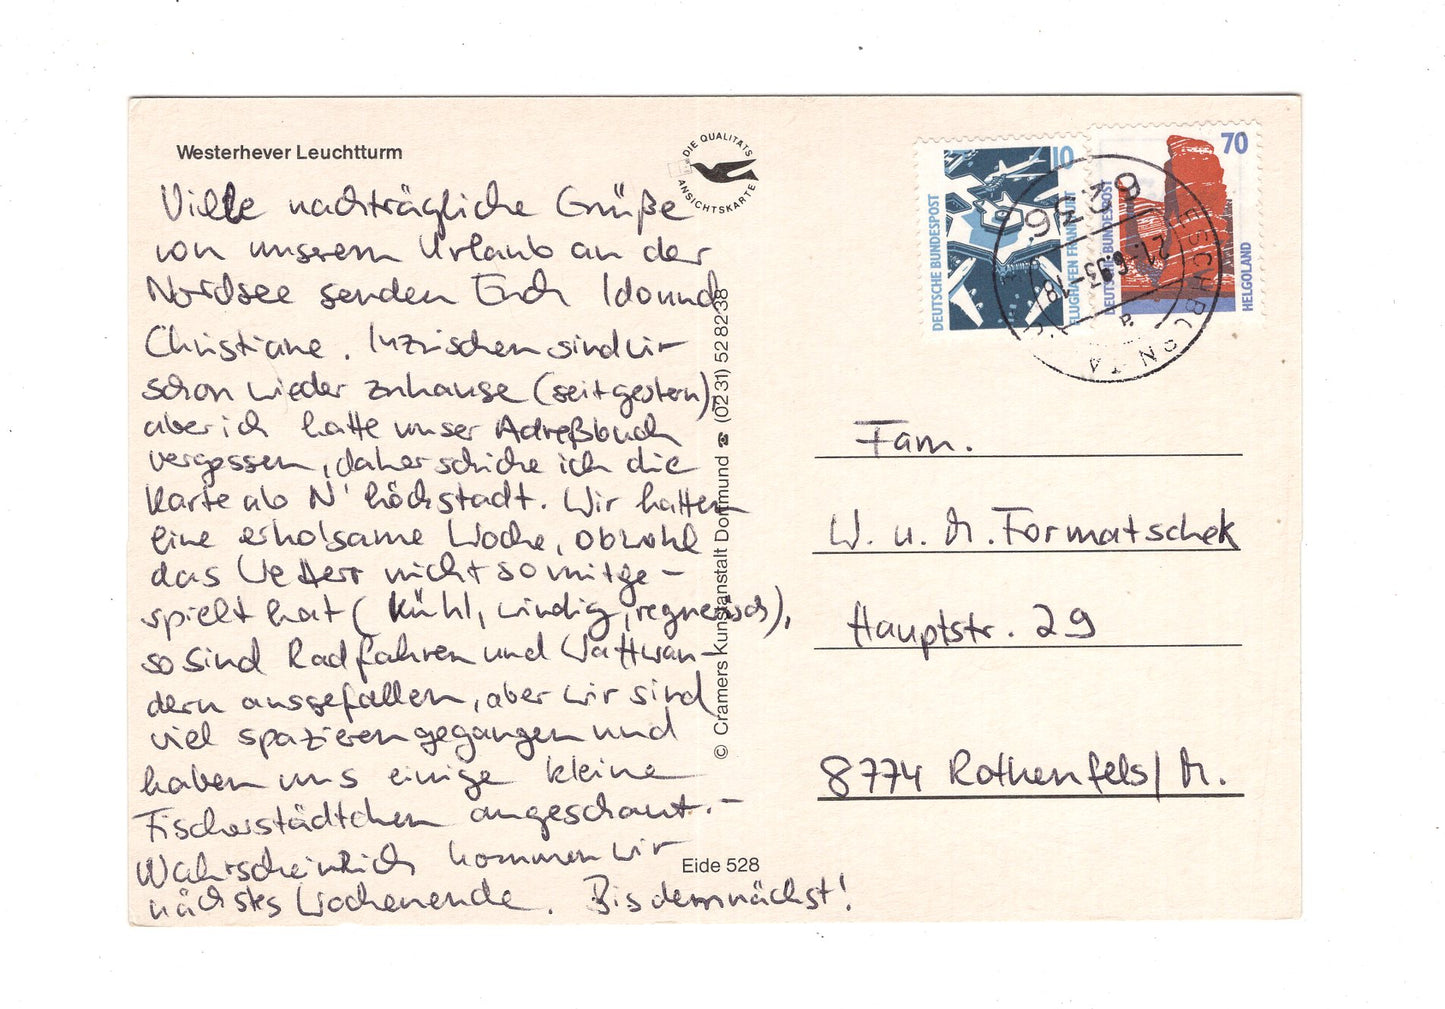 Westerhever Leuchtturm
DIE QUALITÄTS
ANSICHTSKARTE
Viele nachträgliche Grüße
von unserem Urlaub an der
Nordsee senden Euch Ido und
Christiane. Inzwischen sind wir
schon wieder zuhause (seit gestern),
aber ich hatte unser Adreßbuch
vergessen, daher schicke ich die
Karte ab N'höchstadt. Wir hatten
eine erholsame Woche, obwohl
das Wetter nicht so mitge-
spielt hat (kühl, windig, regnerisch),
so sind Radfahren und Wattwan-
dern ausgefallen, aber wir sind
viel spazierengegangen und
haben uns einige kleine
Fischerstädtchen angeschaut.-
Wahrscheinlich kommen wir
nächstes Wochenende. Bis demnächst!
© Cramers Kunstanstalt Dortmund ☎ (02 31) 52 82 38
Eide 528
DEUTSCHE BUNDESPOST
10
FLUGHAFEN FRANKFURT
DEUTSCHE BUNDESPOST
70
HELGOLAND
21.-6.93-18
Fam.
W. u. M. Formatschek
Hauptstr. 29
8774 Rothenfels/M.